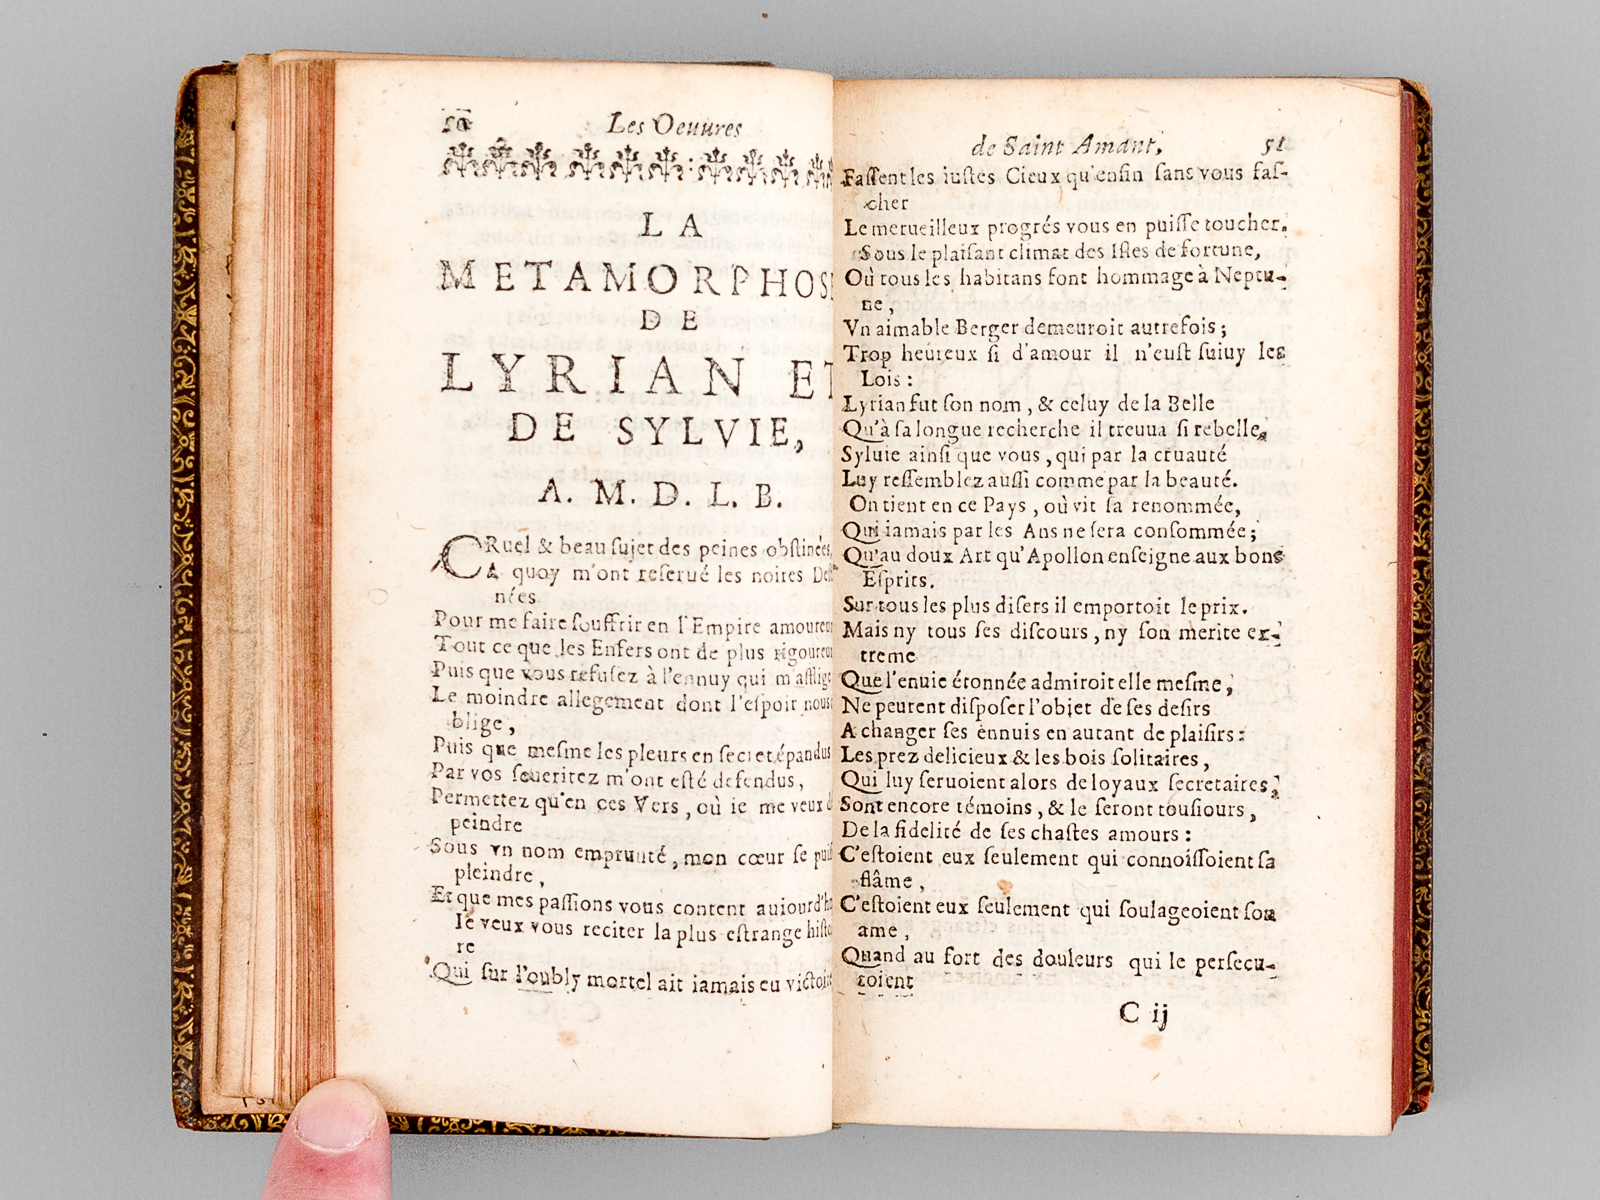 50 Les Oeuures
LA
METAMORPHOSE
DE
LYRIAN ET
DE SYLVIE,
A. M. D. L. B.
CRuel & beau ſujet des peines obſtinées,
A quoy m'ont reſerué les noires Deſ-
nées
Pour me faire ſouffrir en l'Empire amoureu
Tout ce que les Enfers ont de plus rigoureu
Puis que vous refuſez à l'ennuy qui m'afflige
Le moindre allegement dont l'eſpoir nous
blige,
Puis que meſme les pleurs en ſecret épandus
Par vos ſeueritez m'ont eſté defendus,
Permettez qu'en ces Vers, où ie me veux d
peindre
Sous vn nom emprunté, mon cœur ſe puiſ
pleindre,
Et que mes paſſions vous content auiourd'h
Ie veux vous reciter la plus eſtrange hiſto
re
Qui ſur l'oubly mortel ait iamais eu victoire
de Saint Amant. 51
Faſſent les iuſtes Cieux qu'enfin ſans vous faſ-
cher
Le merueilleux progrés vous en puiſſe toucher.
Sous le plaiſant climat des Iſles de fortune,
Où tous les habitans font hommage à Neptu-
ne,
Vn aimable Berger demeuroit autrefois;
Trop heureux ſi d'amour il n'euſt ſuiuy les
Lois:
Lyrian fut ſon nom, & celuy de la Belle
Qu'à ſa longue recherche il treuua ſi rebelle,
Syluie ainſi que vous, qui par la cruauté
Luy reſſemblez auſſi comme par la beauté.
On tient en ce Pays, où vit ſa renommée,
Qui iamais par les Ans ne ſera conſommée;
Qu'au doux Art qu'Apollon enſeigne aux bons
Eſprits.
Sur tous les plus diſers il emportoit le prix.
Mais ny tous ſes diſcours, ny ſon merite ex-
treme
Que l'enuie étonnée admiroit elle meſme,
Ne peurent diſpoſer l'objet de ſes deſirs
A changer ſes ennuis en autant de plaiſirs:
Les prez delicieux & les bois ſolitaires,
Qui luy ſeruoient alors de loyaux ſecretaires,
Sont encore témoins, & le ſeront touſiours,
De la fidelité de ſes chaſtes amours:
C'eſtoient eux ſeulement qui connoiſſoient ſa
flâme,
C'eſtoient eux ſeulement qui ſoulageoient ſon
ame,
Quand au fort des douleurs qui le perſecu-
toient
C ij